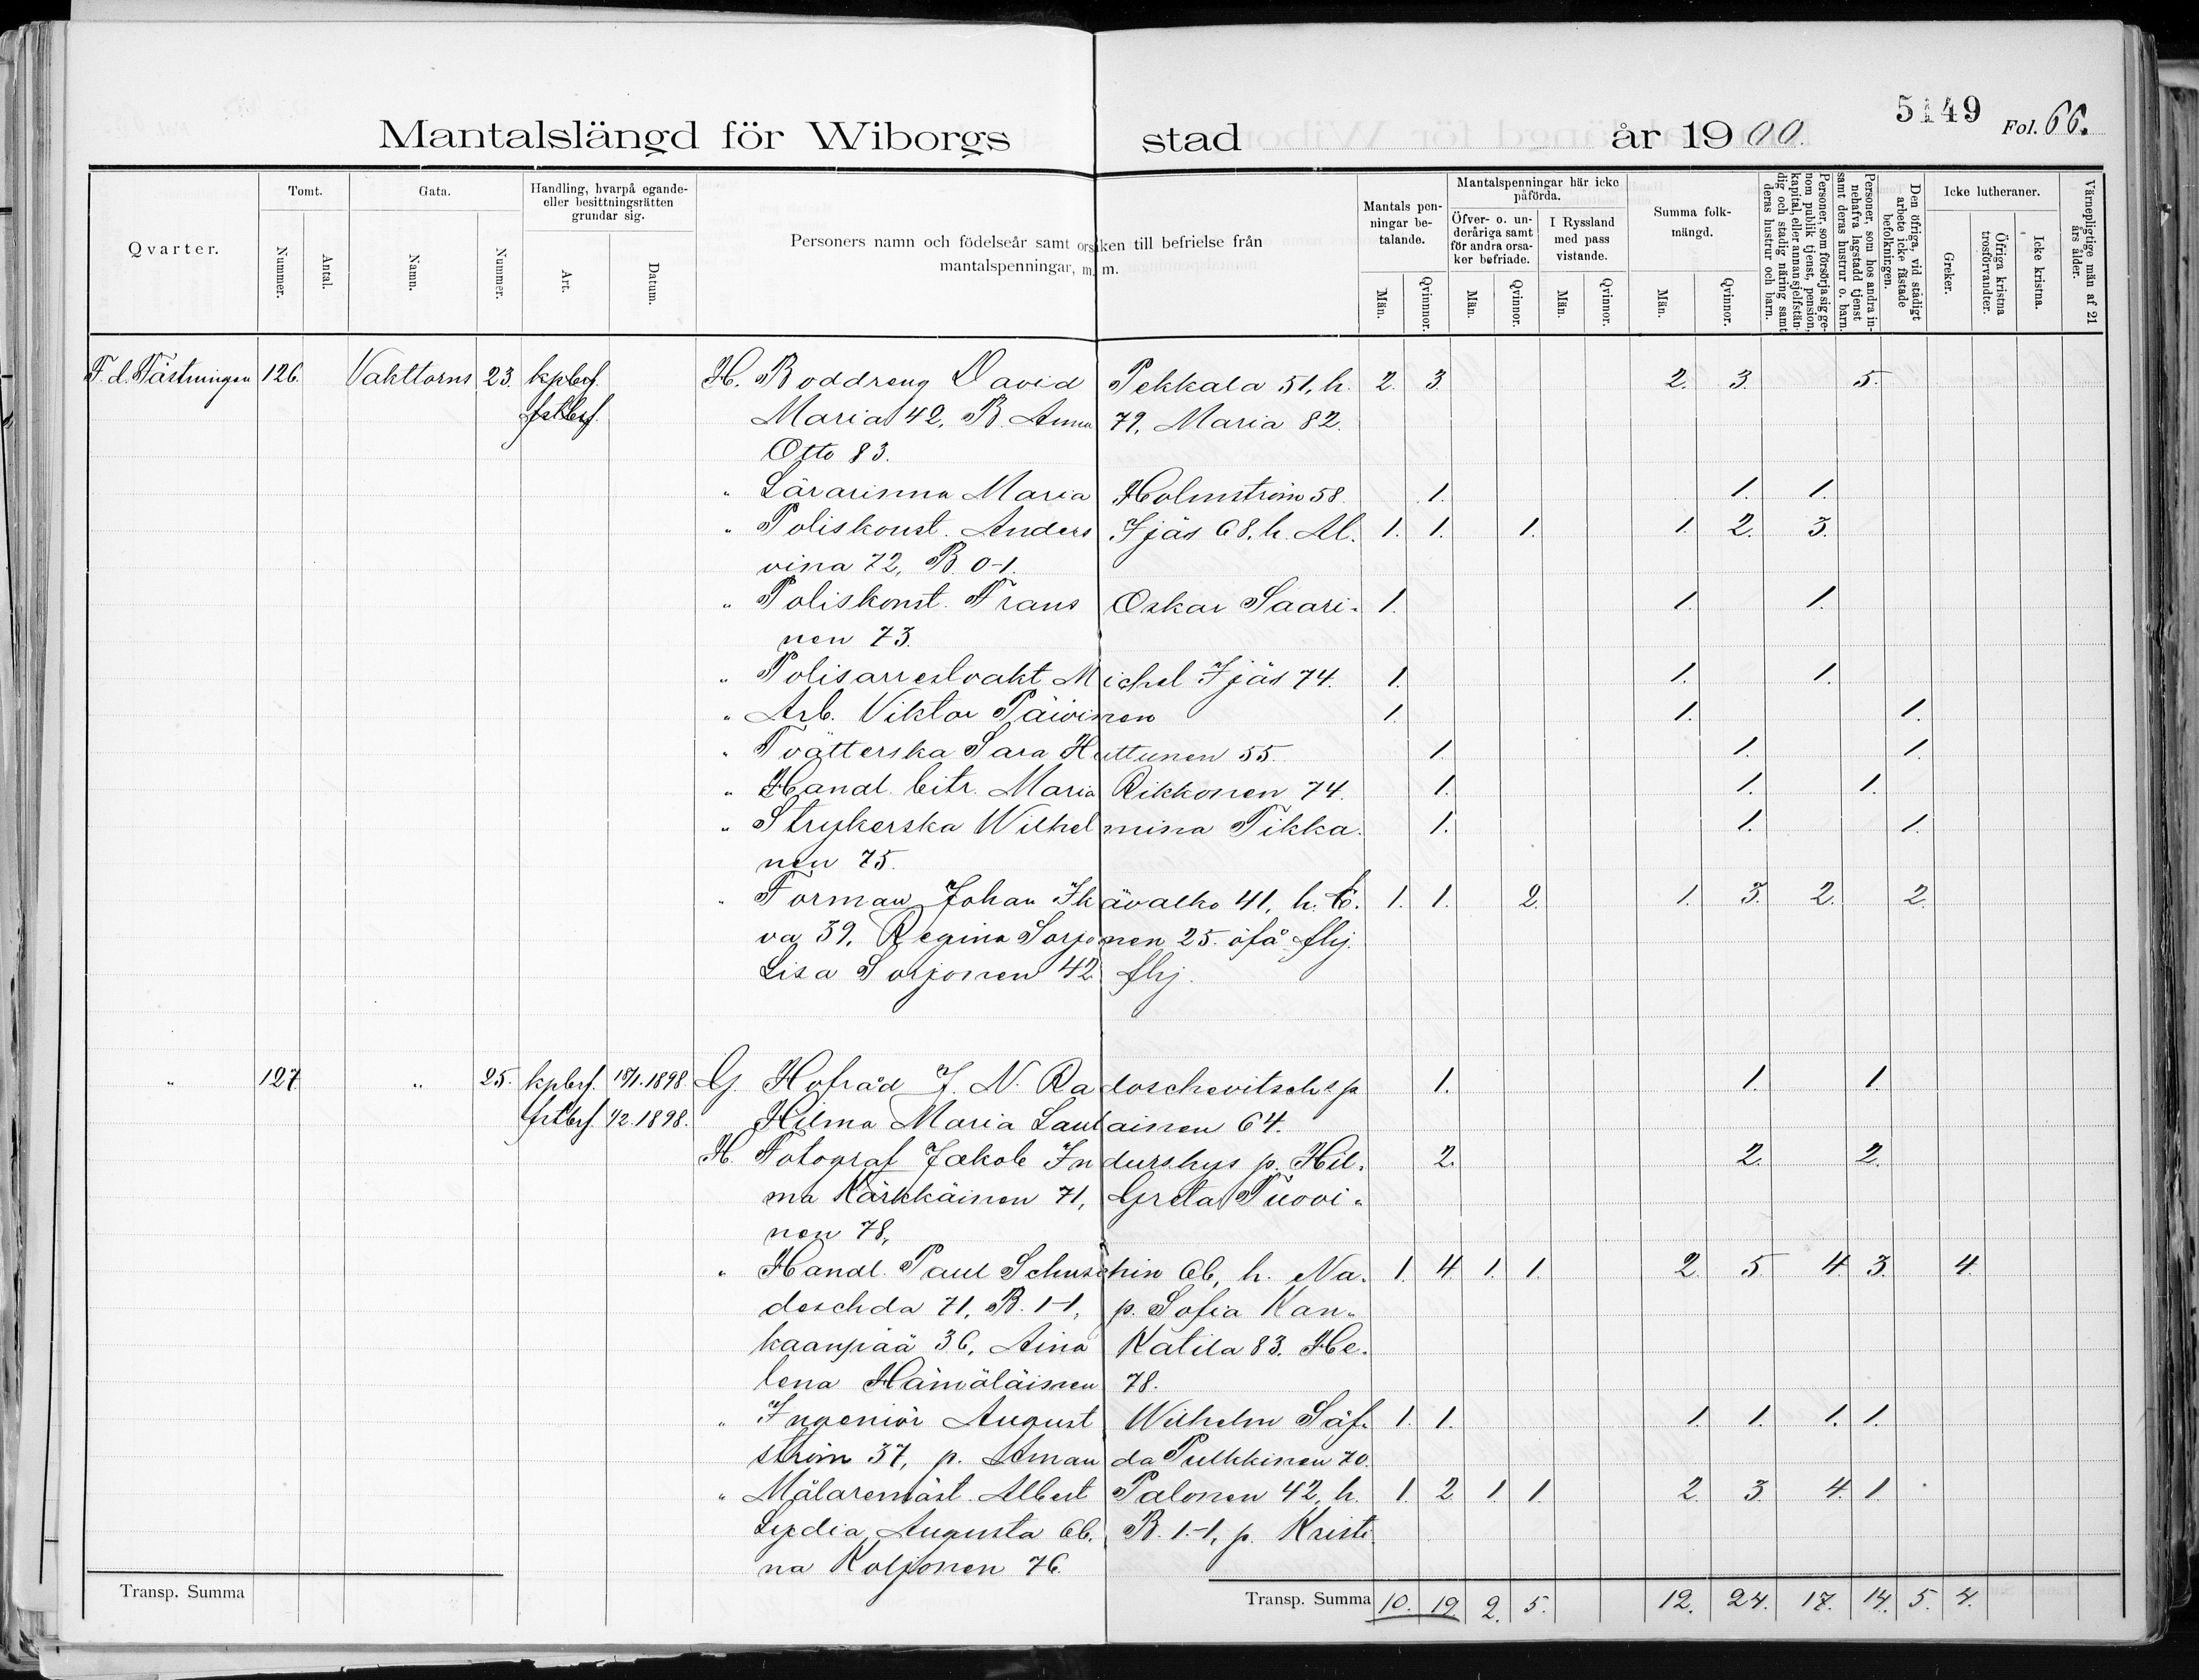 5149
Mantalslängd för Wiborgs stad år 1900. Fol. 66.
Qvarter.
Tomt.
Nummer.
Antal.
Gata.
Namn.
Nummer.
Handling, hvarpå egande-
eller besittningsrätten
grundar sig.
Art.
Datum.
Personers namn och födelseår samt orsaken till befrielse från
mantalspenningar, m. m.
Mantals pen-
ningar be-
talande.
Män.
Qvinnor.
Mantalspenningar här icke
påförda.
Öfver- o. un-
deråriga samt
för andra orsa-
ker befriade.
Män.
Qvinnor.
I Ryssland
med pass
vistande.
Män.
Qvinnor.
Summa folk-
mängd.
Män.
Qvinnor.
Personer, som försörja sig ge-
nom publik tjenst, pension,
kapital, eller annan sjelfstän-
dig och stadig näring samt
deras hustrur och barn.
Personer, som hos andra in-
nehafva lagstadd tjenst
samt deras hustrur o. barn.
Den öfriga, vid städigt
arbete icke fästade
befolkningen.
Icke lutheraner.
Greker.
Öfriga kristna
trosförvandter.
Icke kristna.
Värnepligtige män af 21
års ålder.
F. d. Fästningen 126. Vakttorns 23. kpbrf. H. Boddreng David Pekkala 51, h. 2. 3. 2. 3. 5.
fstbrf. Maria 42, B. Anna 79, Maria 82.
Otto 83.
" Lärarinna Maria Holmström 58 1. 1. 1.
" Poliskonst. Anders Ijäs 68, h. Al. 1. 1. 1. 1. 2. 3.
vina 72, B. 0-1.
" Poliskonst. Frans Oskar Saari- 1. 1. 1.
nen 73.
" Polisarrestvakt Michel Ijäs 74. 1. 1. 1.
" Arb. Viktor Päivinen 1. 1. 1.
" Tvätterska Sara Huttunen 55. 1. 1. 1.
" Handl. bitr. Maria Rikkonen 74. 1. 1. 1.
" Strykerska Wilhelmina Tikka- 1. 1. 1.
nen 75.
" Forman Johan Ikävalko 41, h. E. 1. 1. 2. 1. 3. 2. 2.
va 39, Regina Sorjonen 25. öfå flj.
Lisa Sorjonen 42 flj.
" 127 " 25. kpbrf. 18/1. 1898. G. Hofråd J. N. Radoschevitsch s p 1. 1. 1.
fstbrf. 1/2. 1898. Hilma Maria Laulainen 64.
H. Fotograf Jakob Indurskys p. Hil- 2. 2. 2.
ma Kärkkäinen 71, Greta Tuovi-
nen 78,
" Handl. Paul Schuschin 66, h. Na- 1. 4. 1. 1. 2. 5. 4. 3. 4.
deschda 71, B. 1-1, p. Sofia Kan-
kaanpää 36, Aina Katila 83. He-
lena Hämäläinen 78.
" Ingeniör August Wilhelm Säf- 1. 1. 1. 1. 1. 1.
ström 37, p. Amanda Pulkkinen 70.
" Målaremäst. Albert Palonen 42, h. 1. 2 1. 1. 2. 3. 4. 1.
Lydia Augusta 66. B. 1-1, p. Kristi
na Koljonen 76.
Transp. Summa Transp. Summa 10. 19. 2. 5. 12. 24. 17. 14. 5. 4.